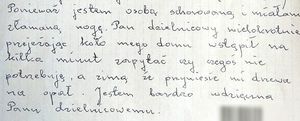 Ponieważ jestem osobą schorowaną i miałam
złamaną nogę. Pan dzielnicowy wielokrotnie
przejeżdżając koło mego domu wstąpił na
kilka minut zapytać czy czegoś nie
potrzebuję, a zimą że przyniesie mi drewa
na opał. Jestem bardzo wdzięczna
Panu dzielnicowemu.